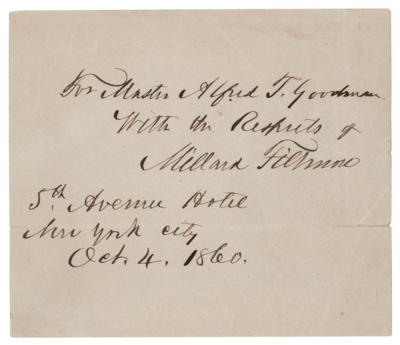 For Master Alfred T. Goodman
With the Respects of
Millard Fillmore
5th Avenue Hotel
New York City
Oct. 4. 1860.